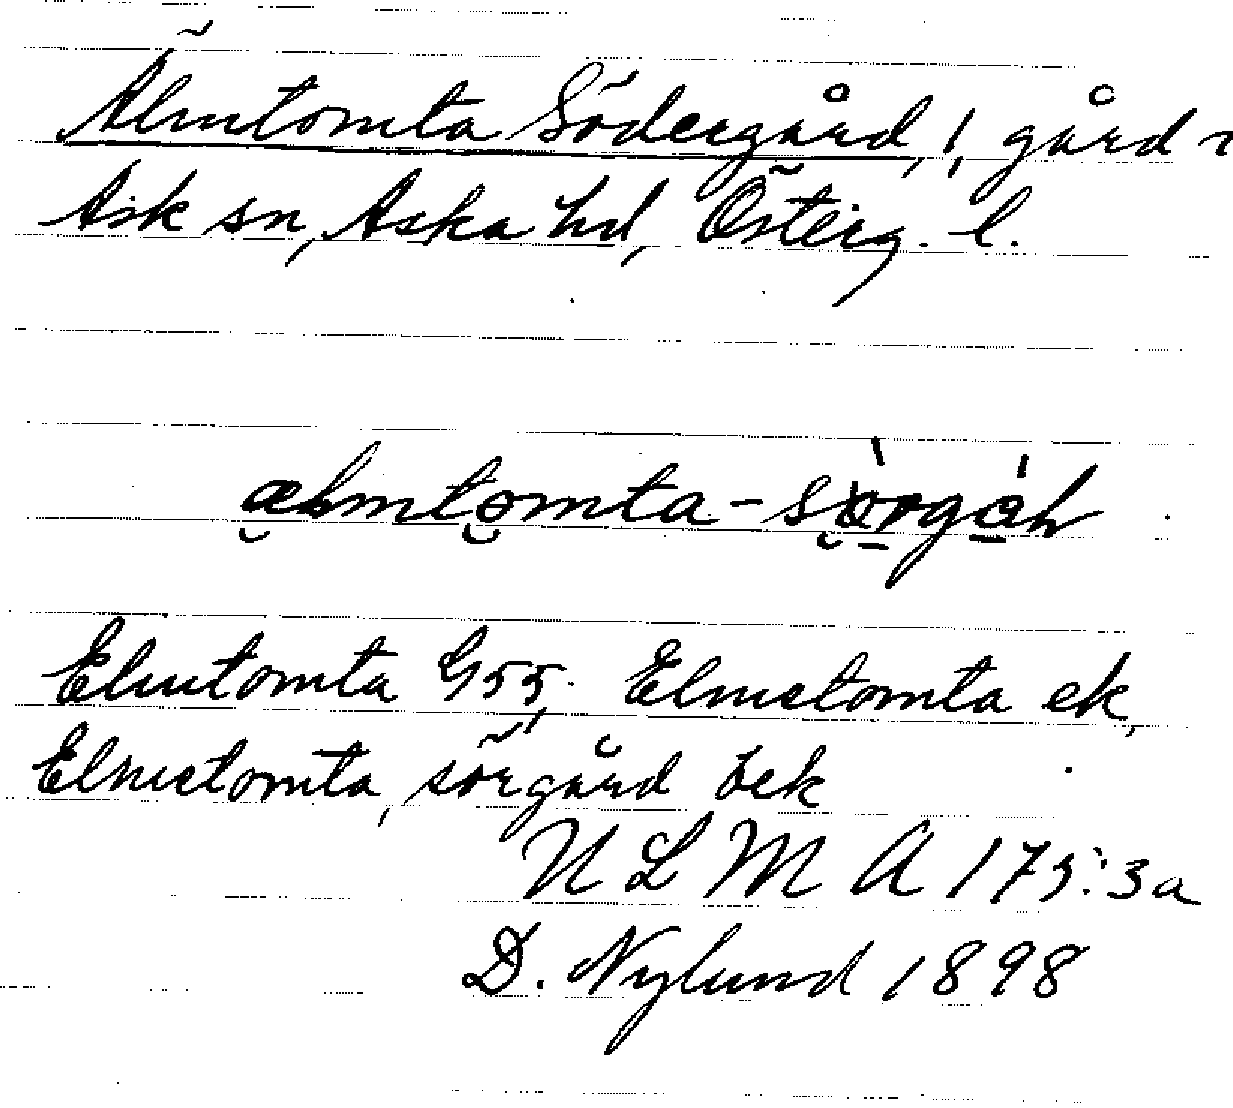 Älmtomta Södergård, !, gård i
Ask sn, Aska hd, Österg. l.
Elmtomta G55, Elmetomta ek,
Elmetomta, sörgård bek
ULMA 173:3a
D. Nylund 1898